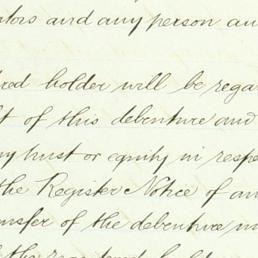 ators and any person an
red holder will be rega
t of this debenture and
ny trust or equity in respe
the Register Notice of an
ansfer of the debenture m